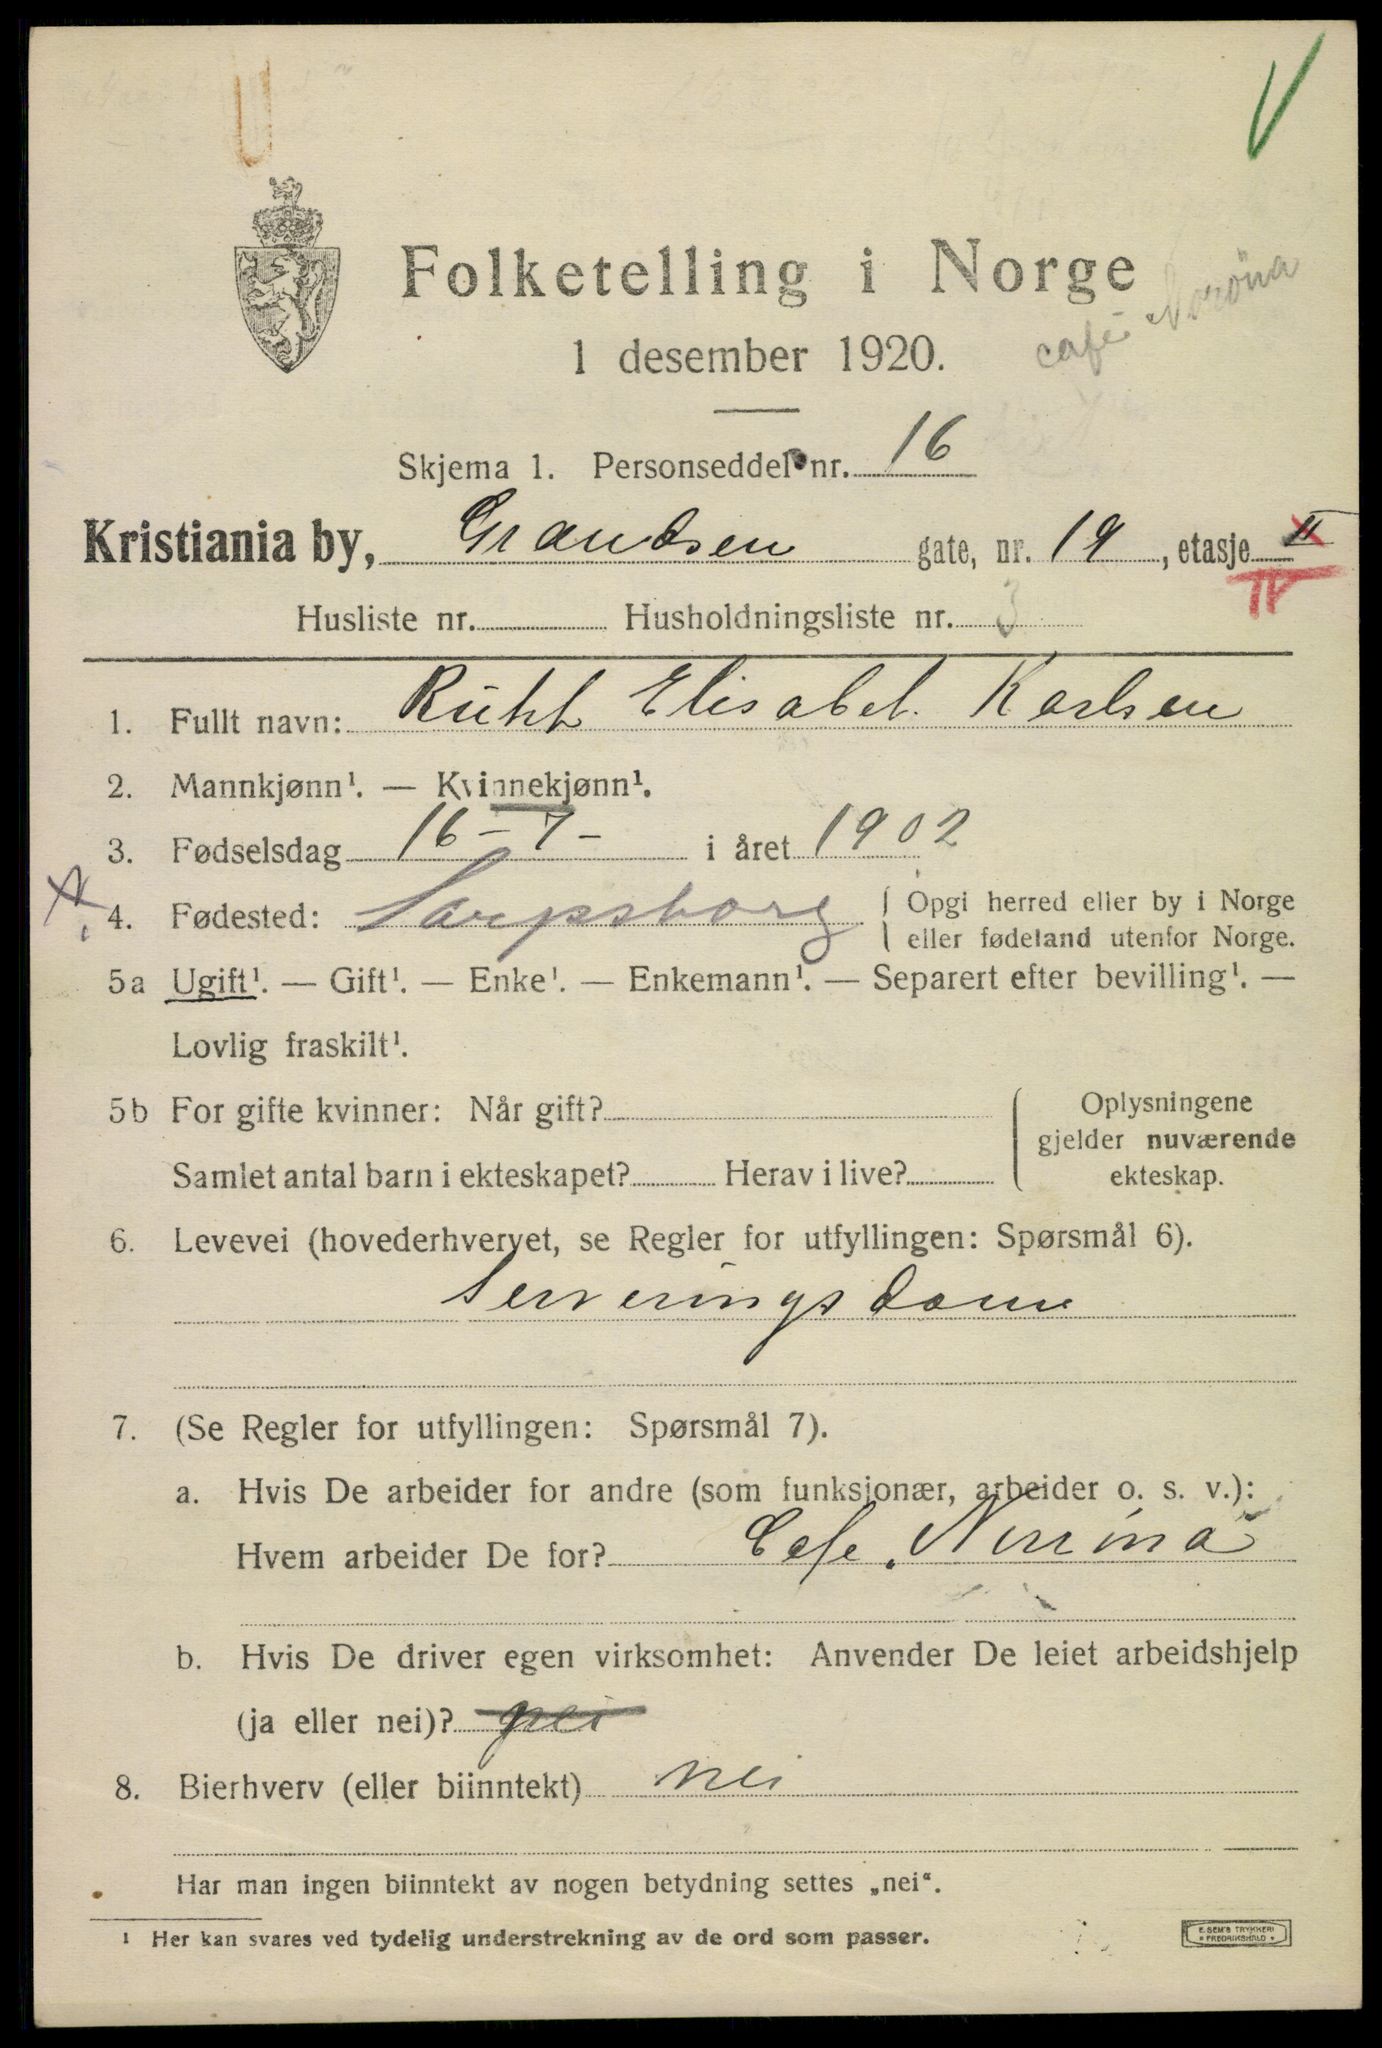 Folketelling i Norge
1 desember 1920.
café Norøna
Skjema 1. Personseddel nr. 16
Kristiania by, Grandsen gate, nr. 19, etasje II
IV
Husliste nr. Husholdningsliste nr. 3
1. Fullt navn: Ruth Elisabet Karlsen
2. Mannkjønn¹. — Kvinnekjønn¹.
3. Fødselsdag 16 - 7 - i året 1902
4. Fødested: Sarpsborg { Opgi herred eller by i Norge
eller fødeland utenfor Norge.
5a Ugift¹. — Gift¹. — Enke¹. — Enkemann¹. — Separert efter bevilling¹. —
Lovlig fraskilt¹.
5b For gifte kvinner: Når gift? Oplysningene
gjelder nuværende
Samlet antal barn i ekteskapet? Herav i live? ekteskap.
6. Levevei (hovederhvervet, se Regler for utfyllingen: Spørsmål 6).
Serveringsdame
7. (Se Regler for utfyllingen: Spørsmål 7).
a. Hvis De arbeider for andre (som funksjonær, arbeider o. s. v.):
Hvem arbeider De for? Cafe
b. Hvis De driver egen virksomhet: Anvender De leiet arbeidshjelp
(ja eller nei)? nei
8. Bierhverv (eller biinntekt) nei
Har man ingen biinntekt av nogen betydning settes „nei“.
¹ Her kan svares ved tydelig understrekning av de ord som passer.
E. SEM'S TRYKKERI
FREDRIKSHALD